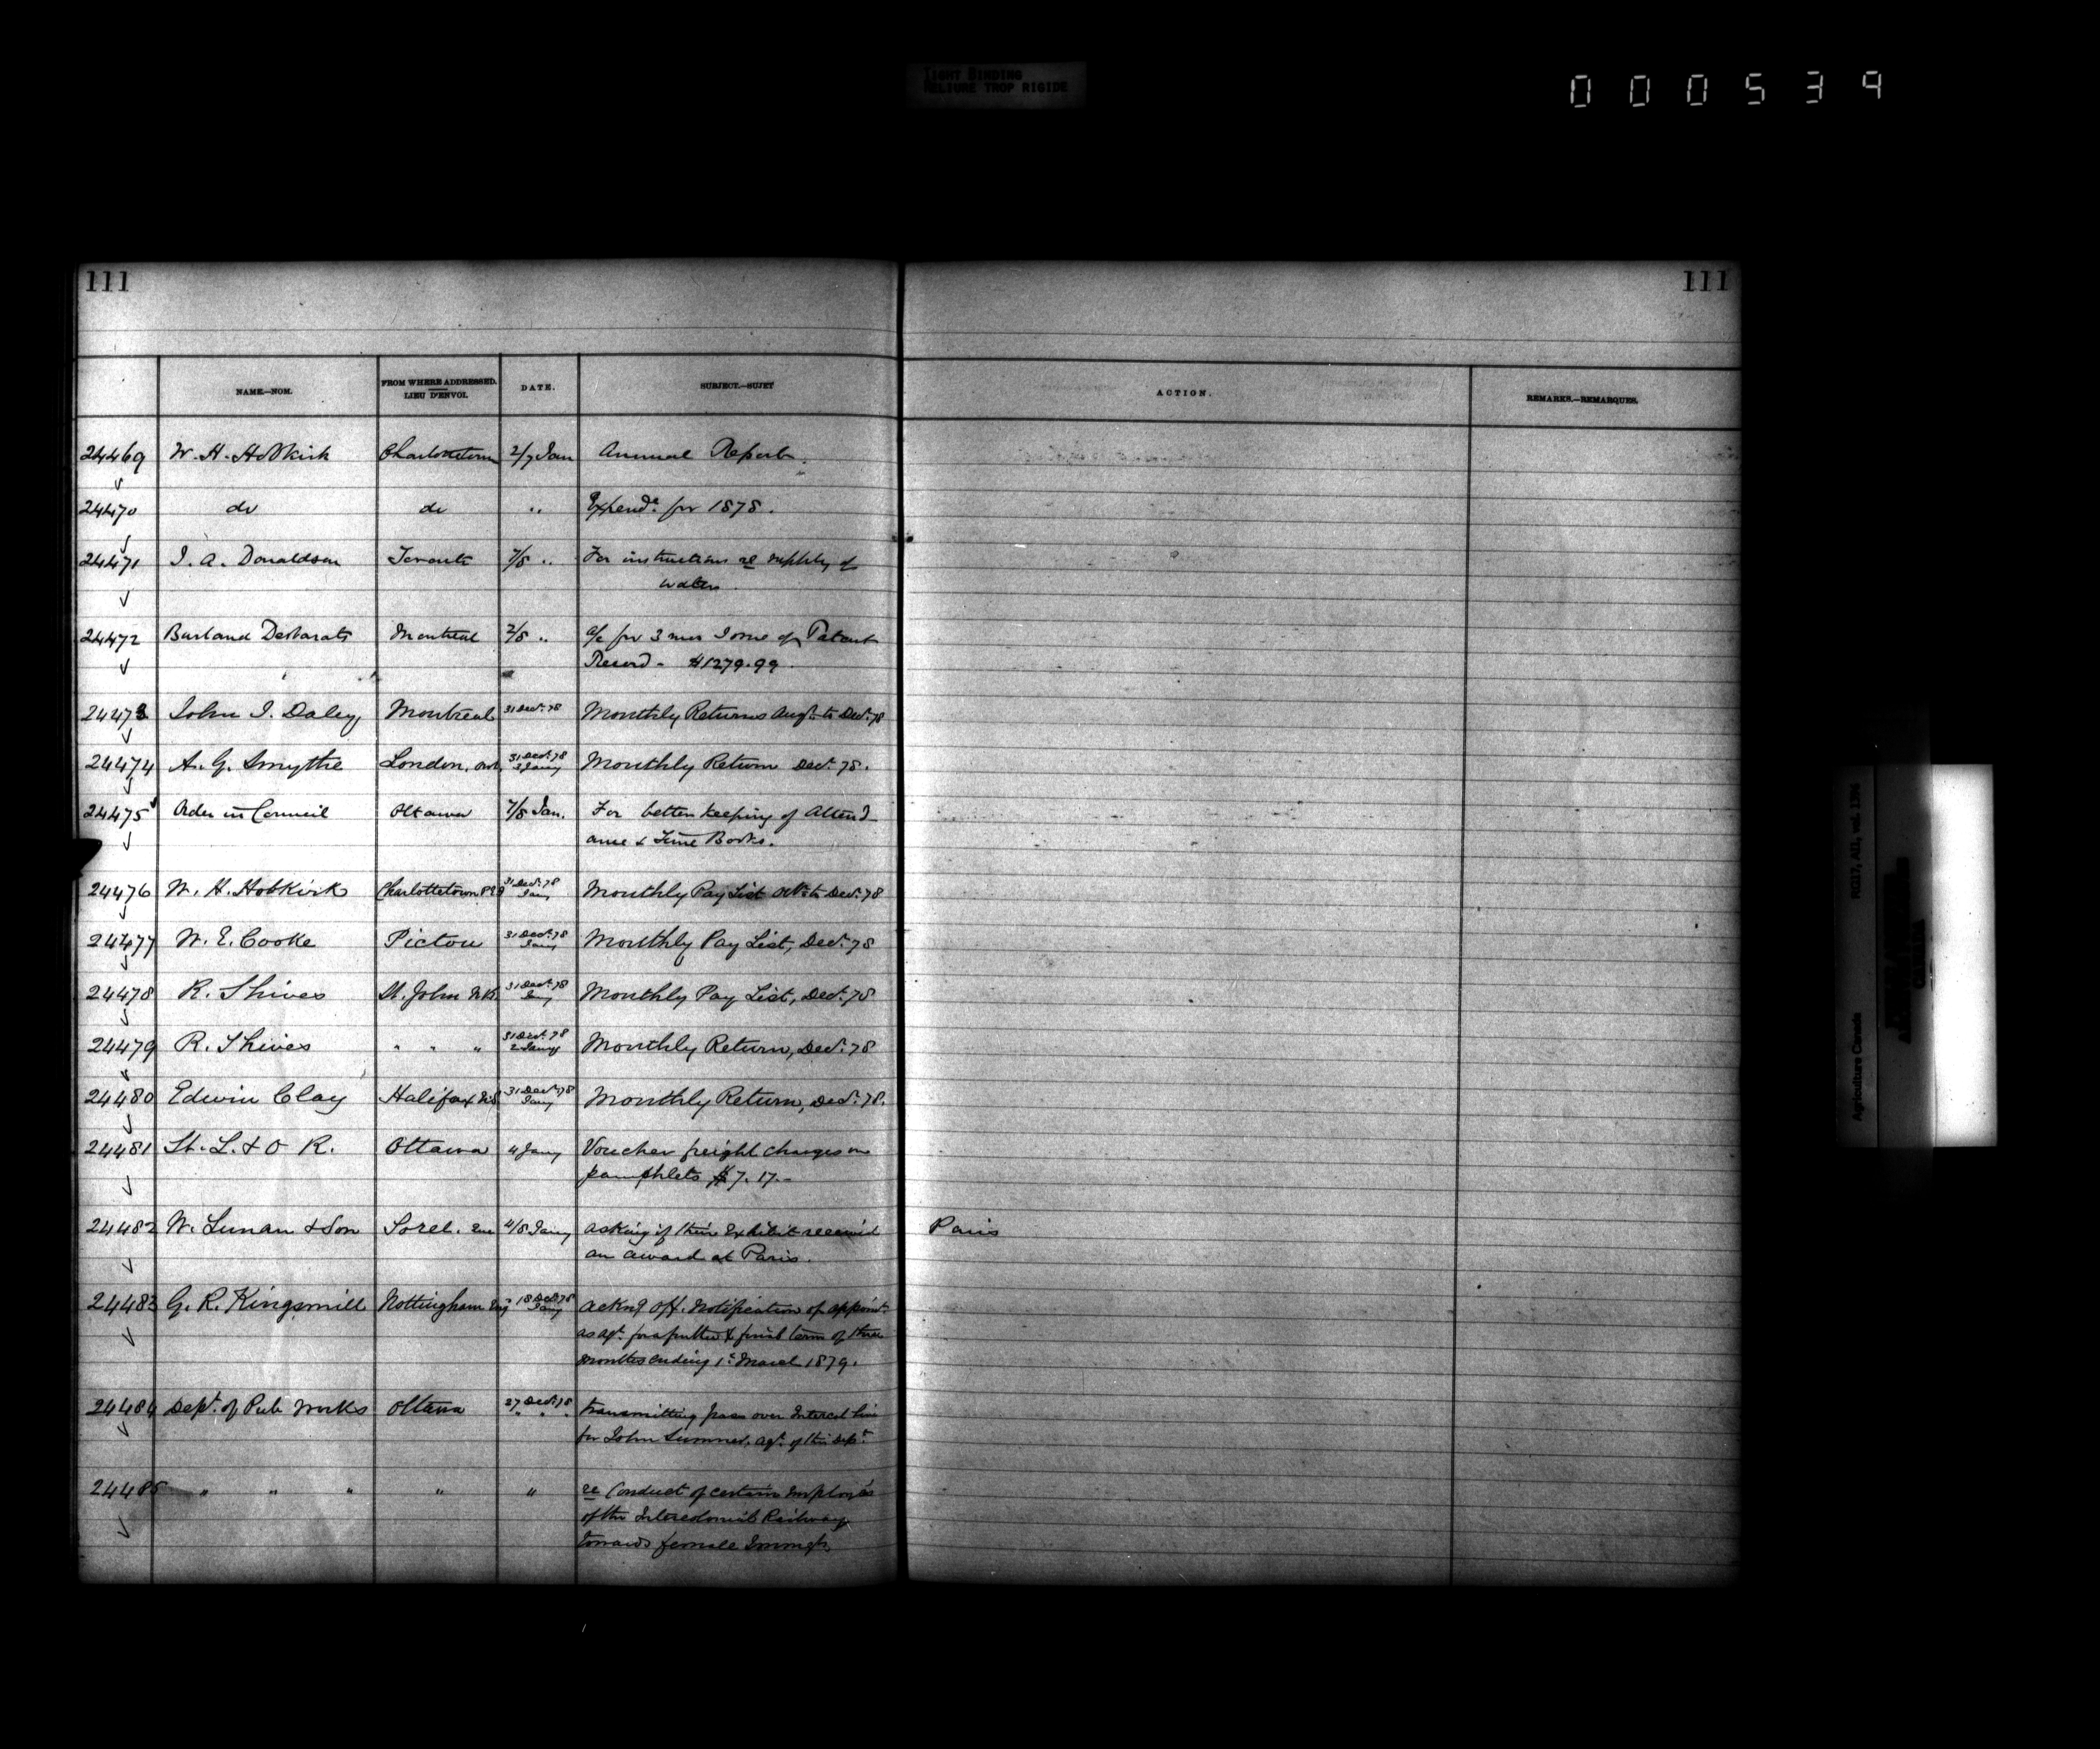 TIGHT BINDING
RELIURE TROP RIGIDE
000539
111 111
NAME.—NOM. FROM WHERE ADDRESSED. LIEU D'ENVOI. DATE. SUBJECT.—SUJET ACTION. REMARKS.—REMARQUES.
24469 W. H. Hobkirk Charlottetown 2/7 Jan Annual Report.
24470 do do " Expendre for 1878.
24471 J. A. Donaldson Toronto 7/8 " For instructions re supply of
water.
24472 Burland Desbarats Montreal 7/8 " a/c for 3 mos Issue of Patent
Record - $1279.99.
24473 John J. Daley Montreal 31 Decr. 78 Monthly Returns Augt. to Decr. 78
24474 A. G. Smythe London, Ont. 31 Decr. 78 3 Jany Monthly Return Decr. 78.
24475 Order in Council Ottawa 7/8 Jan. For better keeping of Attend
ance & Time Books.
24476 W. H. Hobkirk Charlottetown P.E.I 31 Decr. 78 Jany Monthly Pay List Octr. to Decr. 78
24477 W. E. Cooke Pictou 31 Decr. 78 Jany Monthly Pay List, Decr. 78
24478 R. Shives St. John N.B. 31 Decr. 78 Jany Monthly Pay List, Decr. 78
24479 R. Shives " " " 31 Decr. 78 2 Jany Monthly Return, Decr. 78
24480 Edwin Clay Halifax N.S. 31 Decr. 78 Jany Monthly Return, Decr. 78.
24481 St. L. & O R. Ottawa 4 Jany Voucher freight charges on
pamphlets $7.17.-
24482 W. Lunan & Son Sorel. Que 4/8 Jany asking if their Exhibit received Paris
an award at Paris.
24483 G. R. Kingsmill Nottingham Eng 18 Decr. 78 Jany ackng off. notification of appoint.
as agt. for a further & final term of three
months ending 1st March 1879.
24484 Dept. of Pub Works Ottawa 27 Decr. 78 " " transmitting pass over Intercol line
for John Sumner, agt. of this Dept.
24485 " " " " " re Conduct of certain employés
of the Intercolonial Railway
towards female Immgts
RG17, AII, vol. 1396
Agriculture Canada